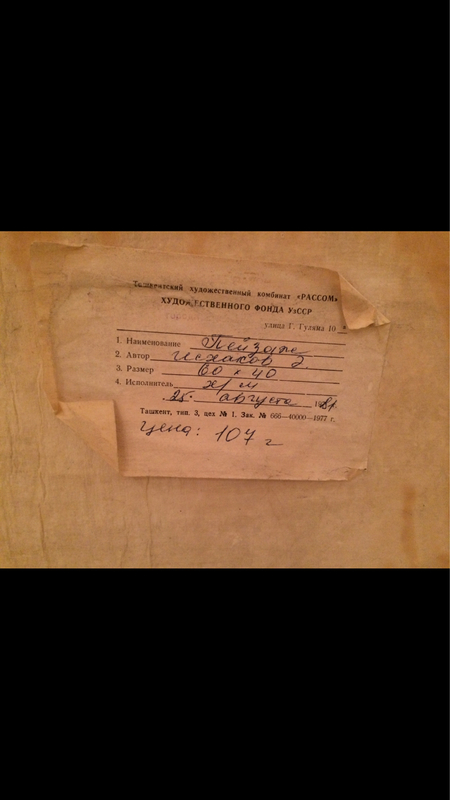 Ташкентский художественный комбинат «РАССОМ»
ХУДОЖЕСТВЕННОГО ФОНДА УзССР
улица Г. Гуляма 10
1. Наименование Пейзаж
2. Автор Исхаков Э
3. Размер 60 x 40
4. Исполнитель х/м
25. августа 1981.
Ташкент, тип. 3, цех № 1. Зак. № 666—40000—1977 г.
Цена: 107